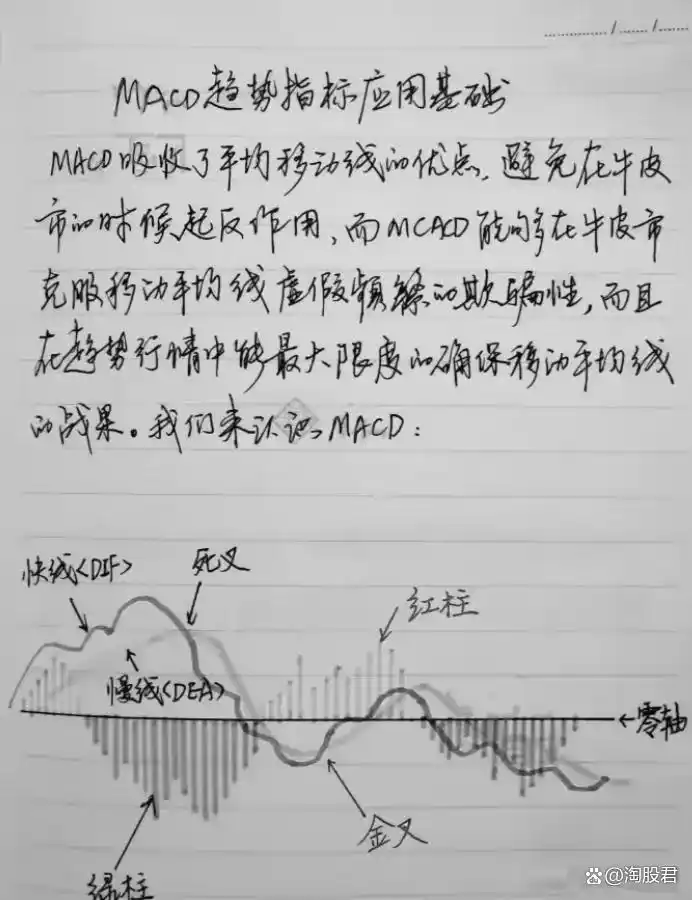 MACD趋势指标应用基础
MACD吸收了平均移动线的优点，避免在牛皮
市的时候起反作用，而MCACD能够在牛皮市
克服移动平均线虚假频繁的欺骗性，而且
在趋势行情中能最大限度的确保移动平均线
的战果。我们来认识MACD：
快线<DIF>
死叉
红柱
慢线<DEA>
←零轴
金叉
绿柱
淘股君